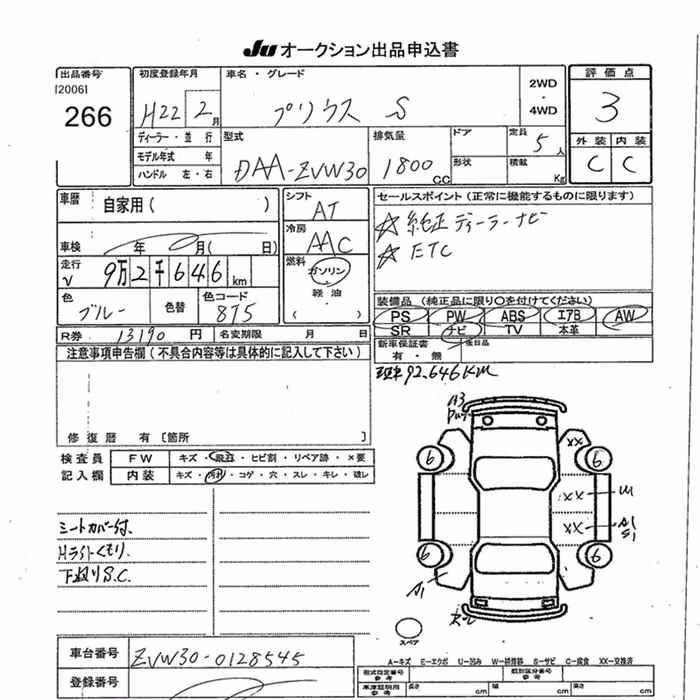 JU オークション出品申込書
出品番号
[2006]
266
初度登録年月
H22 2月
車名・グレード
プリウス S
2WD
・
4WD
評価点
3
外装 内装
C C
ディーラー・並行
モデル年式 年
ハンドル 左・右
型式
DAA-ZVW30
排気量
1800 CC
ドア
形状
定員 5人
積載 Kg
車歴 自家用( )
車検 年 月( 日)
走行 9万2千646 km
色 ブルー
色替
色コード 8T5
シフト
AT
冷房
AAC
燃料
ガソリン
軽油
( )
セールスポイント(正常に機能するものに限ります)
☆純正ディーラーナビ
☆ETC
装備品 (純正品に限り○を付けてください)
PS PW ABS エアB AW
SR ナビ TV 本革
新車保証書
有・無
後日品
R券 13190円 名変期限 月 日
注意事項申告欄(不具合内容等は具体的に記入して下さい)
修復歴 有〔箇所 〕
92.646KM
検査員
記入欄
FW キズ・飛石・ヒビ割・リペア跡・×要
内装 キズ・汚れ・コゲ・穴・スレ・キレ・破レ
シートカバー付.
Hライトくもり.
下廻りS.C.
A3
6 6
XX
XX
XX
A1
S1
6 6
A1
スペア
A-キズ E-エクボ U-凹み W-補修跡 S-サビ C-腐食 XX-交換済
車台番号 ZVW30-0128545
登録番号
型式指定番号
参考
類別区分番号
参考
車庫証明用
参考
長さ cm
幅 cm
高さ cm